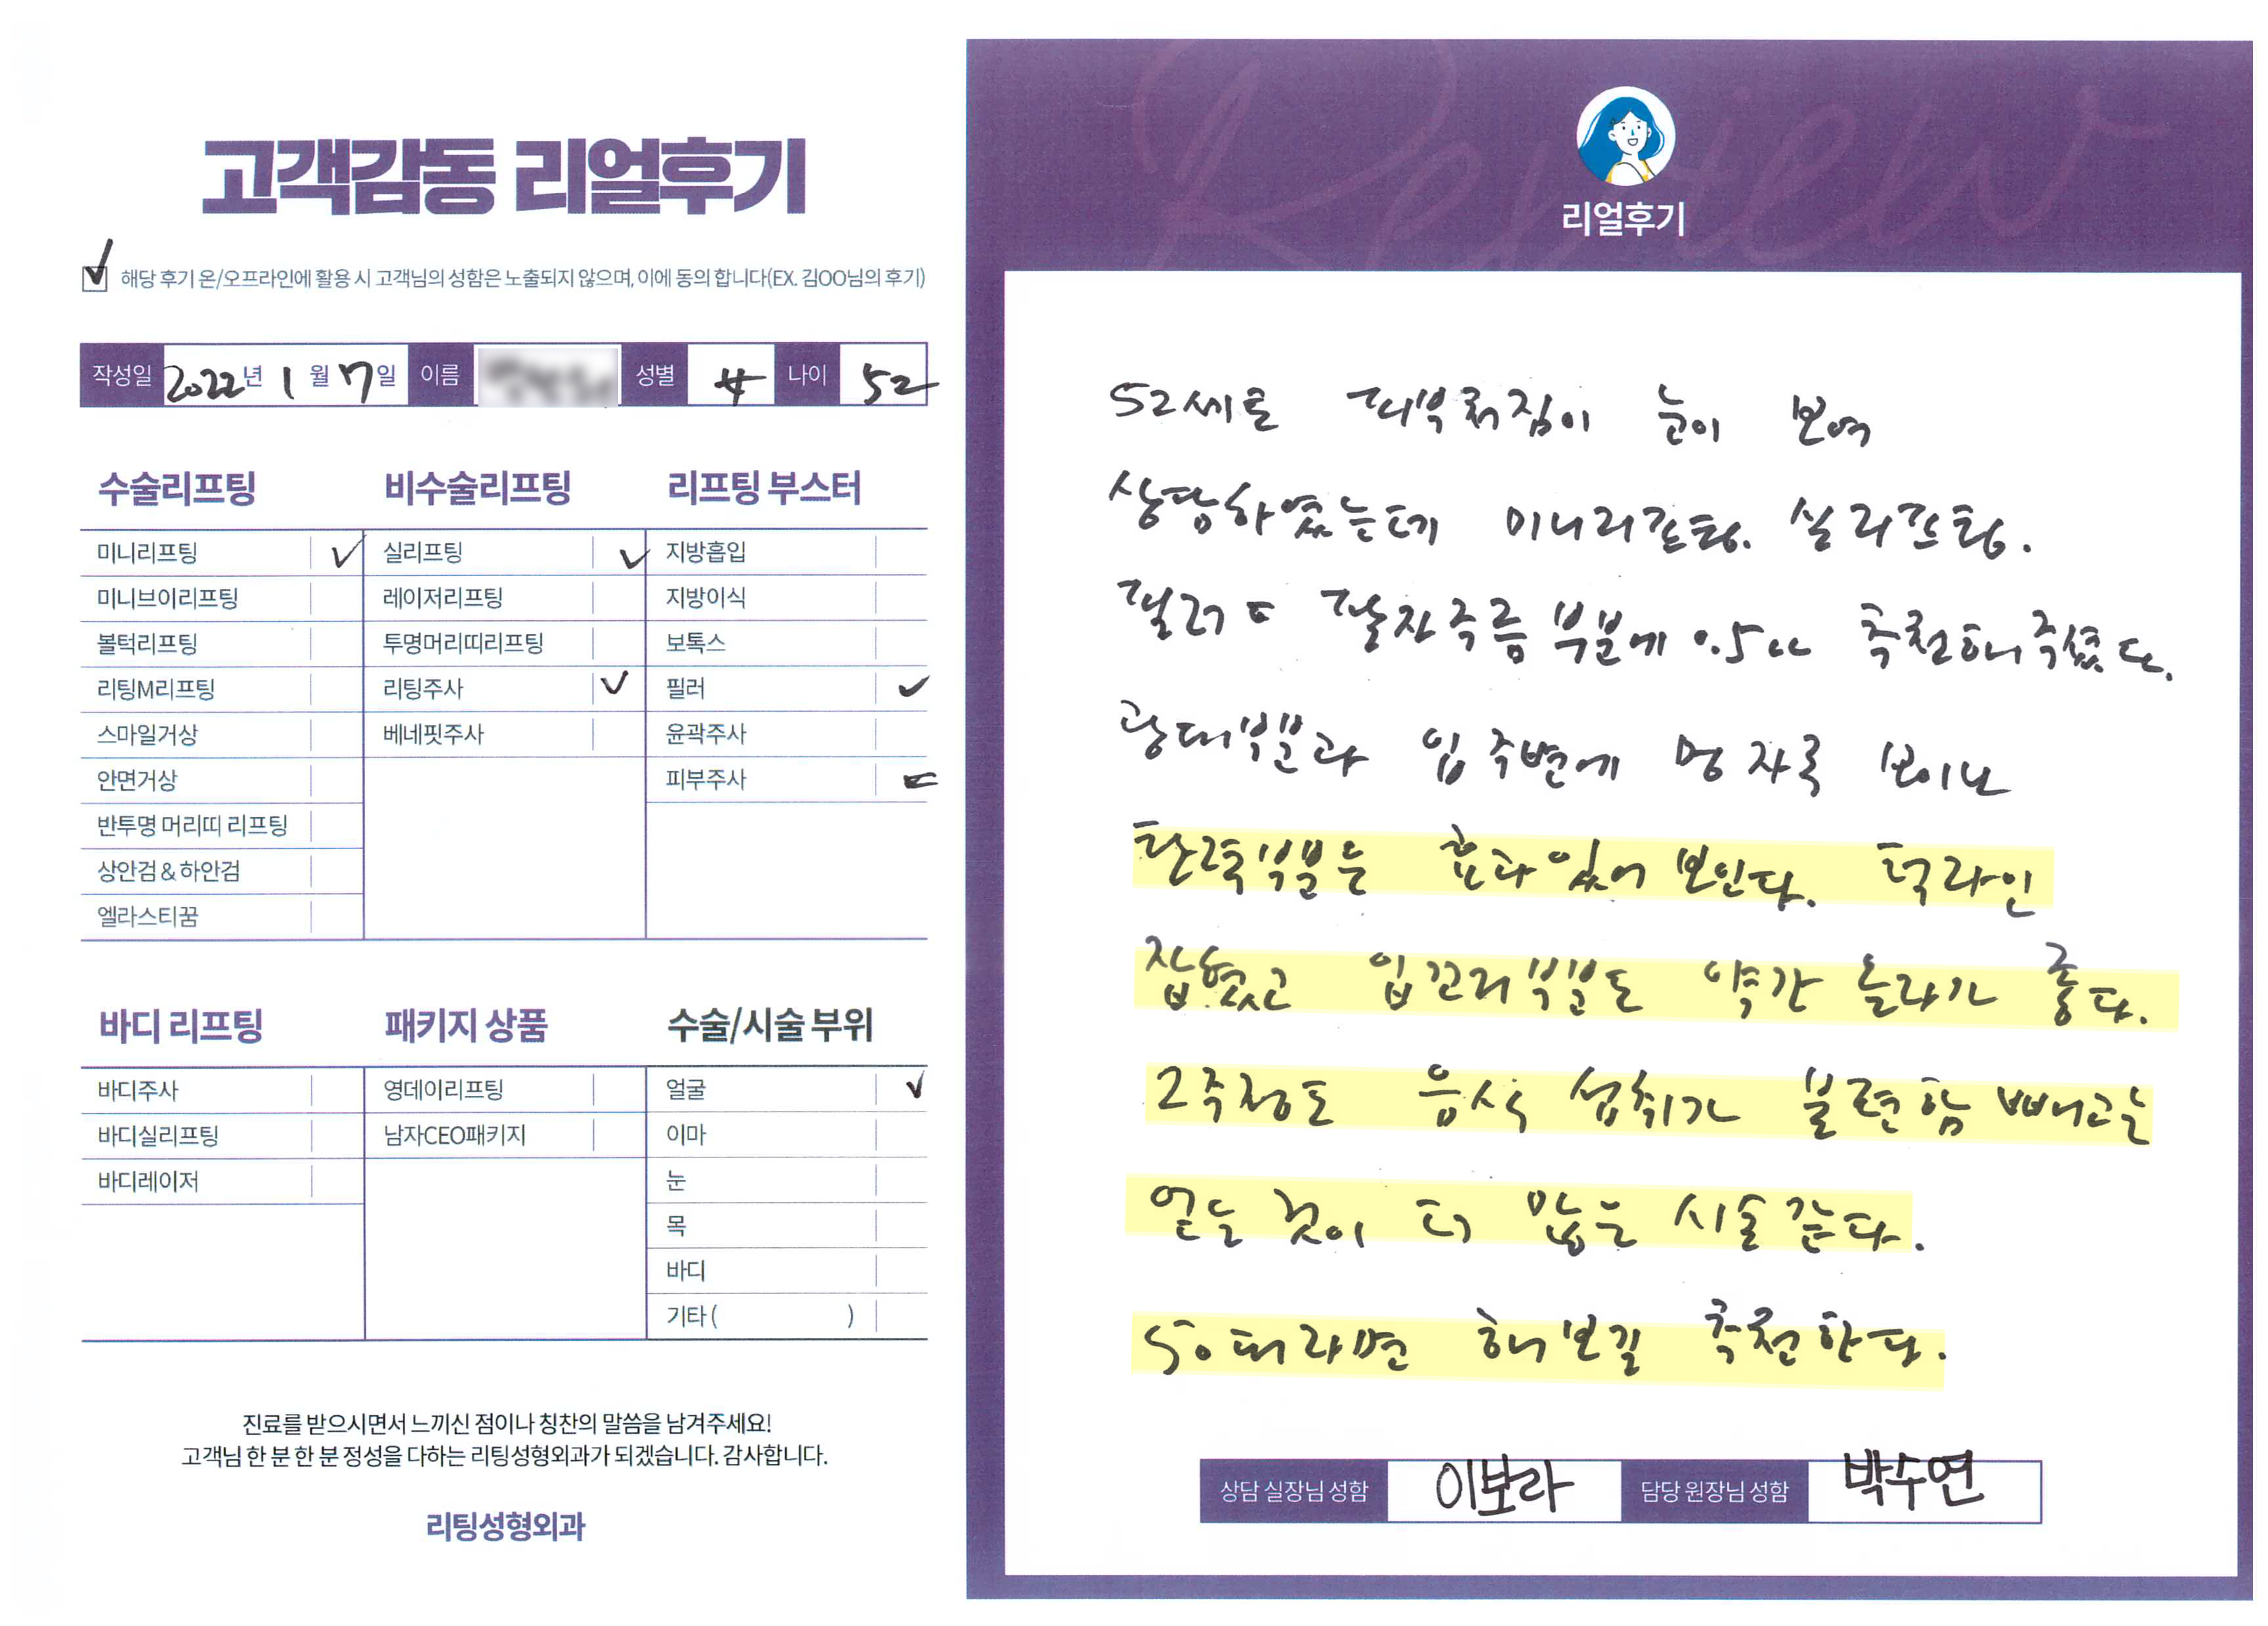 고객감동 리얼후기
해당 후기 온/오프라인에 활용 시 고객님의 성함은 노출되지 않으며, 이에 동의 합니다(EX. 김OO님의 후기)
작성일 2022년 1월 7일 이름 성별 女 나이 52
수술리프팅
미니리프팅
미니브이리프팅
볼턱리프팅
리팅M리프팅
스마일거상
안면거상
반투명 머리띠 리프팅
상안검 & 하안검
엘라스티꿈
비수술리프팅
실리프팅
레이저리프팅
투명머리띠리프팅
리팅주사
베네핏주사
리프팅 부스터
지방흡입
지방이식
보톡스
필러
윤곽주사
피부주사
바디 리프팅
바디주사
바디실리프팅
바디레이저
패키지 상품
영데이리프팅
남자CEO패키지
수술/시술 부위
얼굴
이마
눈
목
바디
기타 ( )
진료를 받으시면서 느끼신 점이나 칭찬의 말씀을 남겨주세요!
고객님 한 분 한 분 정성을 다하는 리팅성형외과가 되겠습니다. 감사합니다.
리팅성형외과
Review
리얼후기
52세로 피부쳐짐이 눈이 보여
상담하였는데 미니리프팅. 실리프팅.
필러도 팔자주름 부분에 0.5cc 추천해주셨다.
광대부분과 입 주변에 멍 자국 보이나
탄력부분는 효과있어 보인다. 턱라인
잡혔고 입꼬리부분도 약간 올라가 좋다.
2주정도 음식 섭취가 불편함 빼고는
얻는 것이 더 많은 시술 같다.
50대라면 해보길 추천한다.
상담 실장님 성함 이보라 담당 원장님 성함 박수연